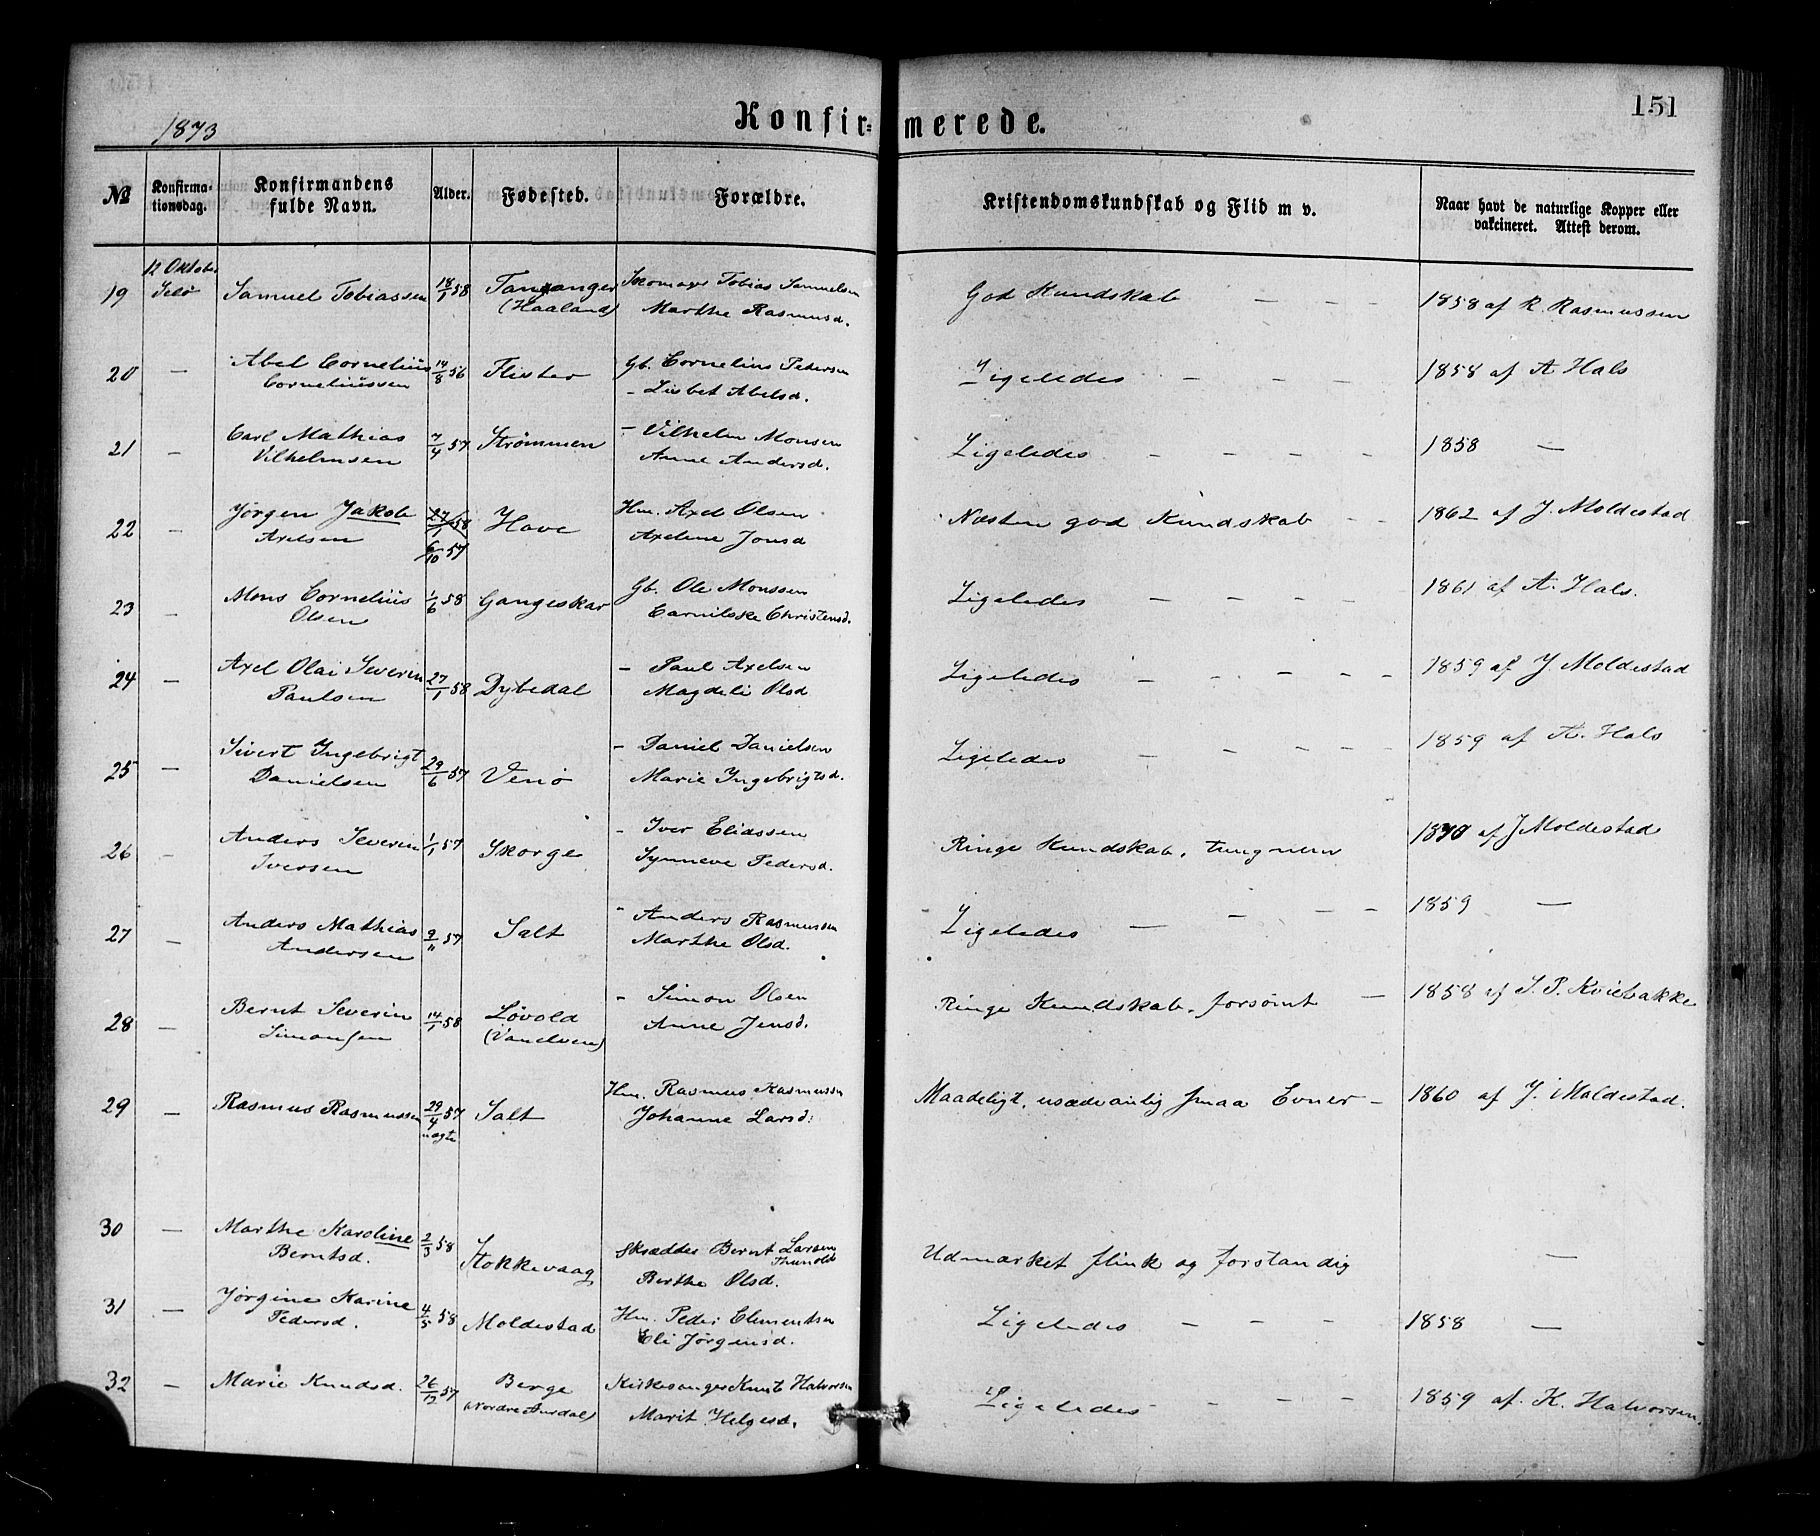 1873
Konfirmerede.
151
№
Konfirma-
tionsdag.
Konfirmandens
fulde Navn.
Alder.
Fødested.
Forældre.
Kristendomskundskab og Flid m v.
Naar havt de naturlige Kopper eller
vakcineret. Attest derom.
12 Oktob.
19 Selø Samuel Tobiassen 18/1 58 Tananger Skomager Tobias Samuelsen God Kundskab — — — 1858 af R. Rasmussen
(Haaland) Marthe Rasmusd.
20 — Abel Cornelius 14/8 56 Flister Gb. Cornelius Petersen Ligeledes — — — 1858 af A Hals
Corneliussen - Lisbet Abelsd.
21 — Carl Mathias 7/4 57 Strømmen - Vilhelm Monsen Ligeledes — — — — 1858 —
Vilhelmsen Anne Andersd.
22 — Jørgen Jakob 27/1 58 Have Hm. Axel Olsen Næsten god Kundskab — — 1862 af J. Moldestad
Axelsen 6/10 57 Axeline Jonsd
23 — Mons Cornelius 1/6 58 Gangeskar Gb. Ole Monssen Ligeledes — — — — 1861 af A. Hals.
Olsen Carnilske Christensd.
24 — Axel Olai Severin 27/1 58 Dybedal - Paul Axelsen Ligeledes — — — — 1859 af J. Moldestad
Paulsen Magdeli Olsd
25 — Sivert Ingebrigt 29/6 57 Venø - Daniel Danielsen Ligeledes — — — — 1859 af A. Hals
Danielsen Marie Ingebrigtsd.
26 — Anders Severin 1/1 57 Skorge - Iver Eliassen Ringe Kundskab, tungnem 1870 af J Moldestad
Iversen Synneve Pedersd.
27 — Anders Mathias 9/11 57 Salt - Anders Rasmussen Ligeledes — — — — 1859 —
Andersen Marthe Olsd.
28 — Bernt Severin 14/1 58 Løvold - Simon Olsen Ringe Kundskab, forsømt — 1858 af S. P. Kviebakke
Simonsen (Vanelven) Anne Jensd.
29 — Rasmus Rasmussen 29/4 57 Salt Hm. Rasmus Rasmussen Maadeligt, usædvanlig smaa Evner — 1860 af J. Moldestad.
uægte Johanne Larsd:
30 — Marthe Karoline 2/3 58 Stokkevaag Skrædder Bernt Larsen Udmærket flink og forstandig —
Berntsd. Berthe Olsd.
31 — Jørgine Karine 4/5 58 Moldestad Hm. Peder Clementsen Ligeledes — — — 1858 —
Pedersd. Eli Jørgensd.
32 — Marie Knudsd. 26/12 57 Berge Kirkesanger Knut Halvorsen Ligeledes — — — 1859 af K. Halvorsen.
(Nordre Aurdal) Marit Helgesd.